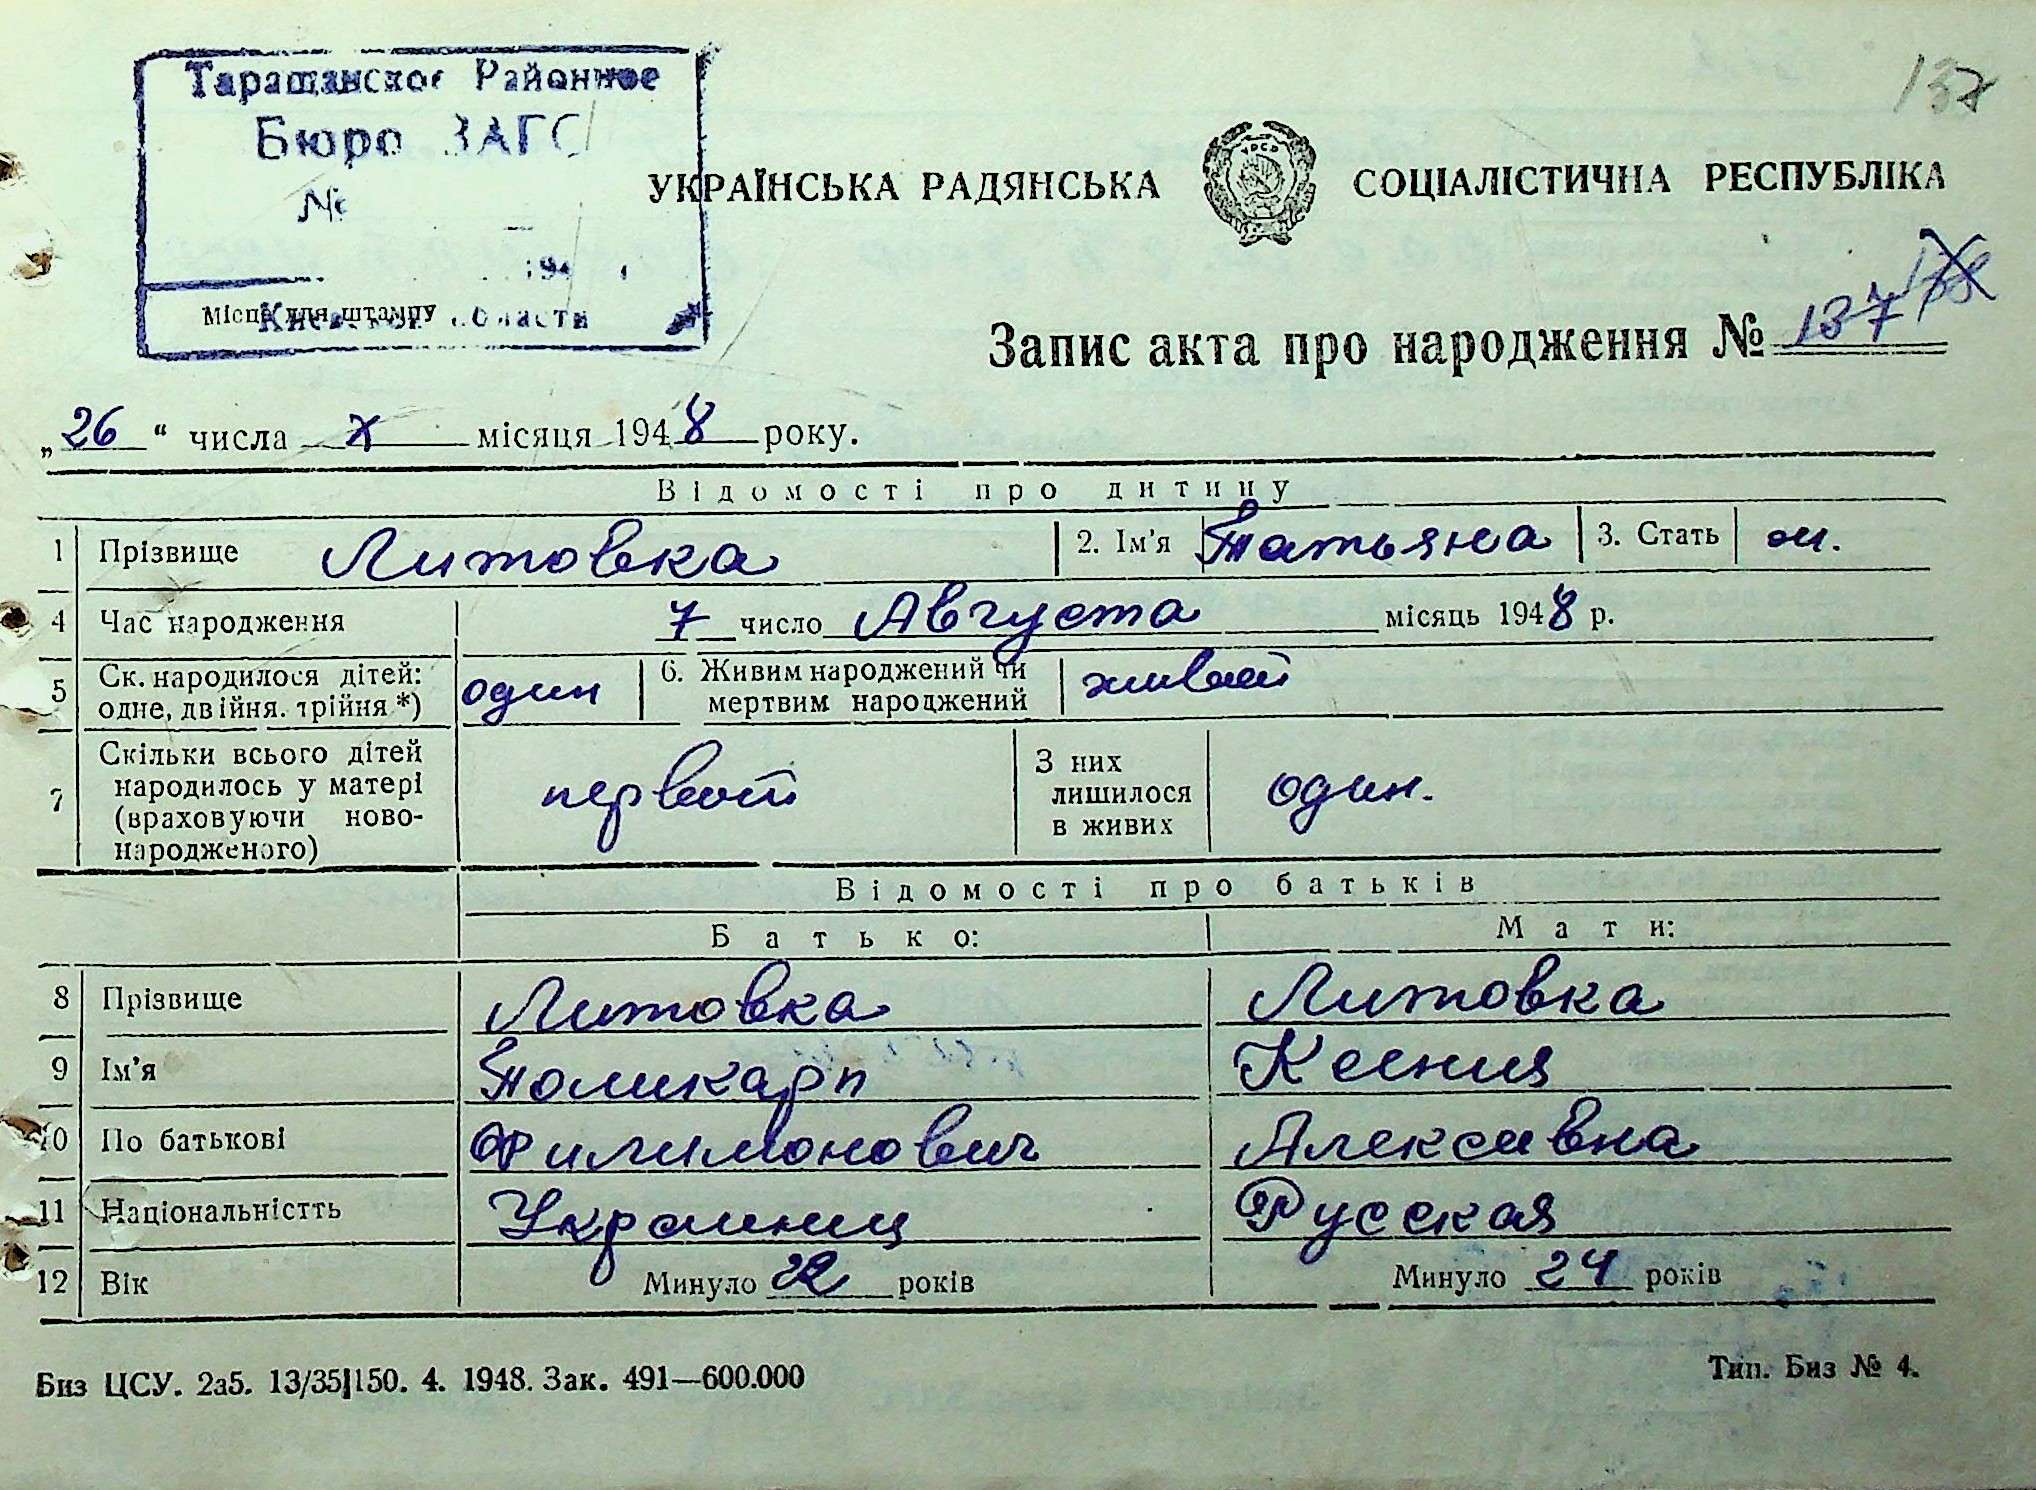 137
Таращанское Районное
Бюро ЗАГС
№
194
Місце для штампу
Киевской области
УКРАЇНСЬКА РАДЯНСЬКА СОЦІАЛІСТИЧНА РЕСПУБЛІКА
УРСР
Запис акта про народження № 137 138
„26“ числа X місяця 1948 року.
Відомості про дитину
1 Прізвище Литовка 2. Ім'я Татьяна 3. Стать
4 Час народження 7 число Августа місяць 1948 р.
5 Ск. народилося дітей: одне, двійня. трійня *) один 6. Живим народжений чи мертвим народжений живой
7 Скільки всього дітей народилось у матері (враховуючи ново-народженого) первой З них лишилося в живих один.
Відомості про батьків
Батько: Мати:
8 Прізвище Литовка Литовка
9 Ім'я Поликарп Ксения
10 По батькові Филимонович Алексеивна
11 Національністть Украинец Русская
12 Вік Минуло 22 років Минуло 24 років
Биз ЦСУ. 2а5. 13/35|150. 4. 1948. Зак. 491—600.000 Тип. Биз № 4.